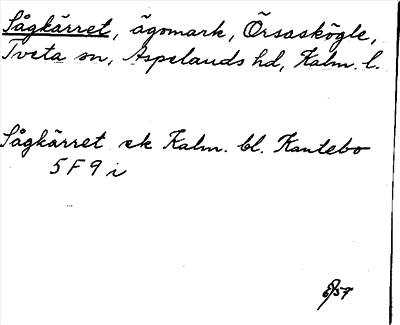 Sågkärret, ägomark, Örsaskögle,
Tveta sn, Aspelands hd, Kalm. l.
Sågkärret ek Kalm. bl. Kantebo
5 F 9 i